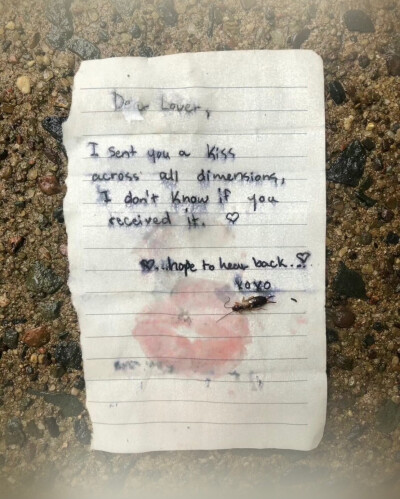 Dear Lover,
I sent you a kiss
across all dimensions,
I don't know if you
received it. ♡
♡...hope to hear back...♡
xoxo